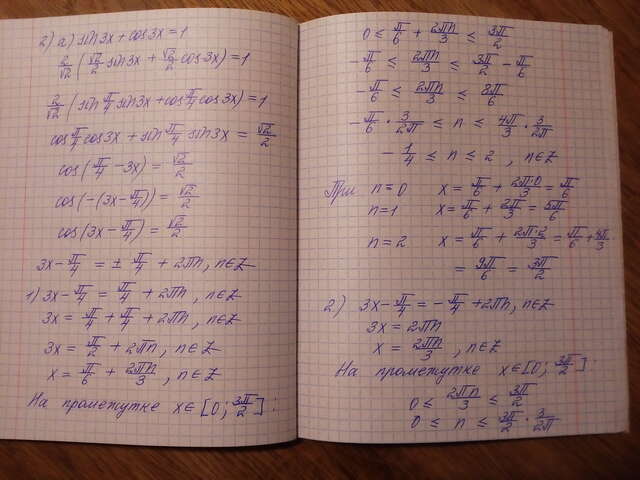 2) а) sin3x + cos3x = 1
2/√2 (√2/2 sin3x + √2/2 cos3x) = 1
2/√2 (sin π/4 sin3x + cos π/4 cos3x) = 1
cos π/4 cos3x + sin π/4 sin3x = √2/2
cos(π/4 - 3x) = √2/2
cos(-(3x - π/4)) = √2/2
cos(3x - π/4) = √2/2
3x - π/4 = ± π/4 + 2πn, n∈Z
1) 3x - π/4 = π/4 + 2πn, n∈Z
3x = π/4 + π/4 + 2πn, n∈Z
3x = π/2 + 2πn, n∈Z
x = π/6 + 2πn/3, n∈Z
На промежутке x∈[0; 3π/2]:
0 ≤ π/6 + 2πn/3 ≤ 3π/2
-π/6 ≤ 2πn/3 ≤ 3π/2 - π/6
-π/6 ≤ 2πn/3 ≤ 8π/6
-π/6 · 3/2π ≤ n ≤ 4π/3 · 3/2π
-1/4 ≤ n ≤ 2, n∈Z
При n=0 x = π/6 + 2π·0/3 = π/6
n=1 x = π/6 + 2π/3 = 5π/6
n=2 x = π/6 + 2π·2/3 = π/6 + 4π/3
= 9π/6 = 3π/2
2) 3x - π/4 = -π/4 + 2πn, n∈Z
3x = 2πn
x = 2πn/3, n∈Z
На промежутке x∈[0; 3π/2]:
0 ≤ 2πn/3 ≤ 3π/2
0 ≤ n ≤ 3π/2 · 3/2π